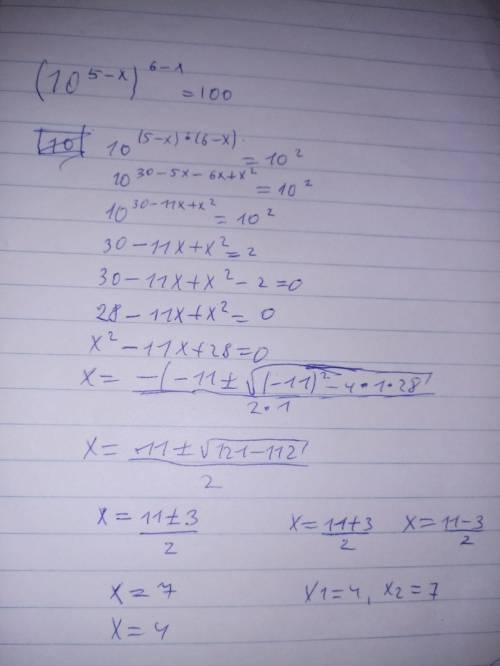 (10^(5-x))^(6-1) = 100
[70] 10^((5-x)•(6-x)) = 10^2
10^(30-5x-6x+x^2) = 10^2
10^(30-11x+x^2) = 10^2
30-11x+x^2 = 2
30-11x+x^2-2=0
28-11x+x^2= 0
x^2-11x+28=0
x= (-(-11±√((-11)^2-4•1•28))/(2•1)
x= (11±√(121-112))/2
x = (11±3)/2 x= (11+3)/2 x= (11-3)/2
x=7 x1=4, x2=7
x=4